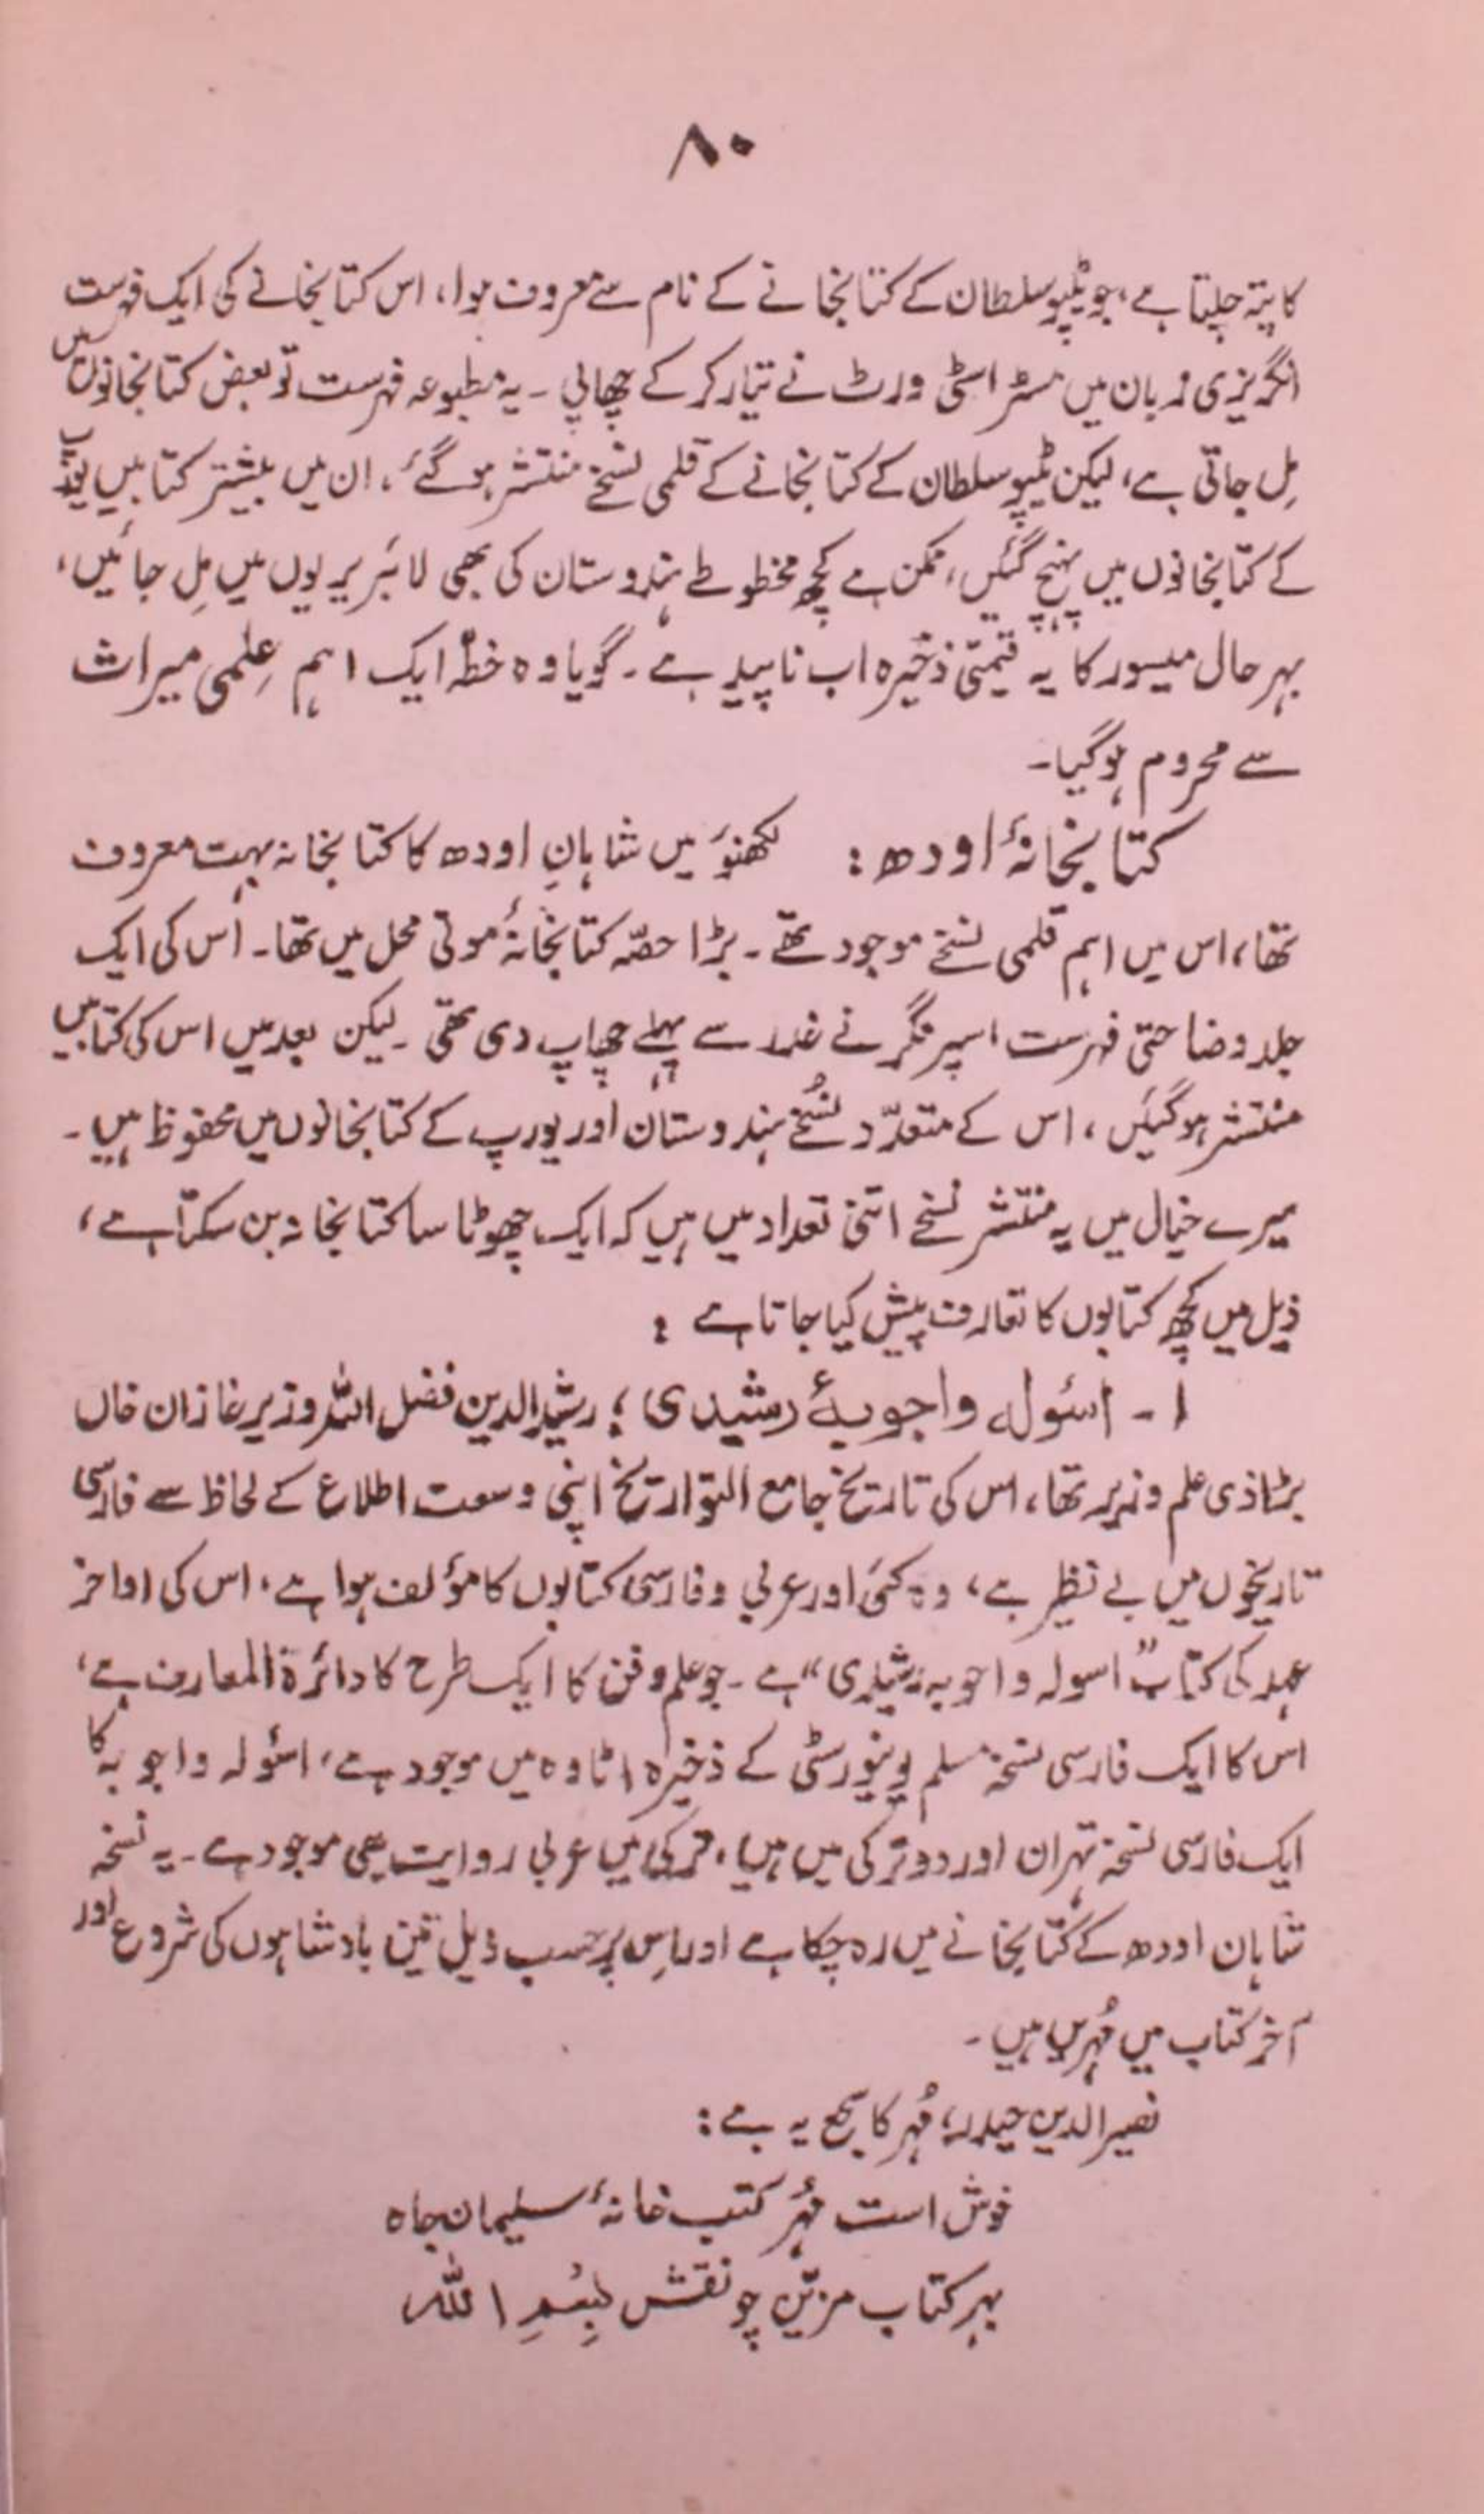 ۸۰
کا پتہ چلتا ہے، جو ٹیپو سلطان کے کتابخانے کے نام سے معروف ہوا، اس کتابخانے کی ایک فہرست
انگریزی زبان میں مسٹر اسٹی ورٹ نے تیار کر کے چھاپی ۔ یہ مطبوعہ فہرست تو بعض کتابخانوں میں
مِل جاتی ہے، لیکن ٹیپو سلطان کے کتابخانے کے قلمی نسخے منتشر ہو گئے، ان میں بیشتر کتابیں یورپ
کے کتابخانوں میں پہنچ گئیں، ممکن ہے کچھ مخطوطے ہندوستان کی بھی لائبریریوں میں مِل جائیں،
بہرحال میسور کا یہ قیمتی ذخیرہ اب ناپید ہے ۔ گویا وہ خطّہ ایک اہم عِلمی میراث
سے محروم ہوگیا۔
کتابخانۂ اودھ : لکھنؤ میں شاہانِ اودھ کا کتابخانہ بہت معروف
تھا، اس میں اہم قلمی نسخے موجود تھے ۔ بڑا حصّہ کتابخانۂ موتی محل میں تھا۔ اُس کی ایک
جلد وضاحتی فہرست اسپرنگر نے غدر سے پہلے چھاپ دی تھی ۔ لیکن بعد میں اس کی کتابیں
منتشر ہوگئیں، اس کے متعدّد نُسخے ہندوستان اور یورپ کے کتابخانوں میں محفوظ ہیں ۔
میرے خیال میں یہ منتشر نسخے اتنی تعداد میں ہیں کہ ایک چھوٹا سا کتابخانہ بن سکتا ہے،
ذیل میں کچھ کتابوں کا تعارف پیش کیا جاتا ہے :
۱ ۔ اسئولہ واجوبۂ رشیدی ؛ رشیدالدین فضل اللہ وزیر غازان خاں
بڑا ذی علم وزیر تھا، اس کی تاریخ جامع التواریخ اپنی وسعت اطلاع کے لحاظ سے فارسی
تاریخوں میں بے نظیر ہے، وہ کئی اور عربی و فارسی کتابوں کا مؤلف ہوا ہے، اس کی اواخر
عہد کی کتاب ”اسولہ واجوبہ رشیدی“ ہے ۔ جو علم و فن کا ایک طرح کا دائرۃ المعارف ہے،
اس کا ایک فارسی نسخہ مسلم یونیورسٹی کے ذخیرہ اٹاوہ میں موجود ہے، اسئولہ واجوبہ کا
ایک فارسی نسخہ تہران اور دو ترکی میں ہیں، ترکی میں عربی روایت بھی موجود ہے ۔ یہ نسخہ
شاہان اودھ کے کتابخانے میں رہ چکا ہے اور اِس پر حسب ذیل تین بادشاہوں کی شروع اور
آخر کتاب میں مُہریں ہیں ۔
نصیرالدین حیدر، مُہر کا سجع یہ ہے :
خوش است مُہر کتب خانۂ سلیمان جاہ
بہر کتاب مزیّن چو نقش بِسْمِ اللہ